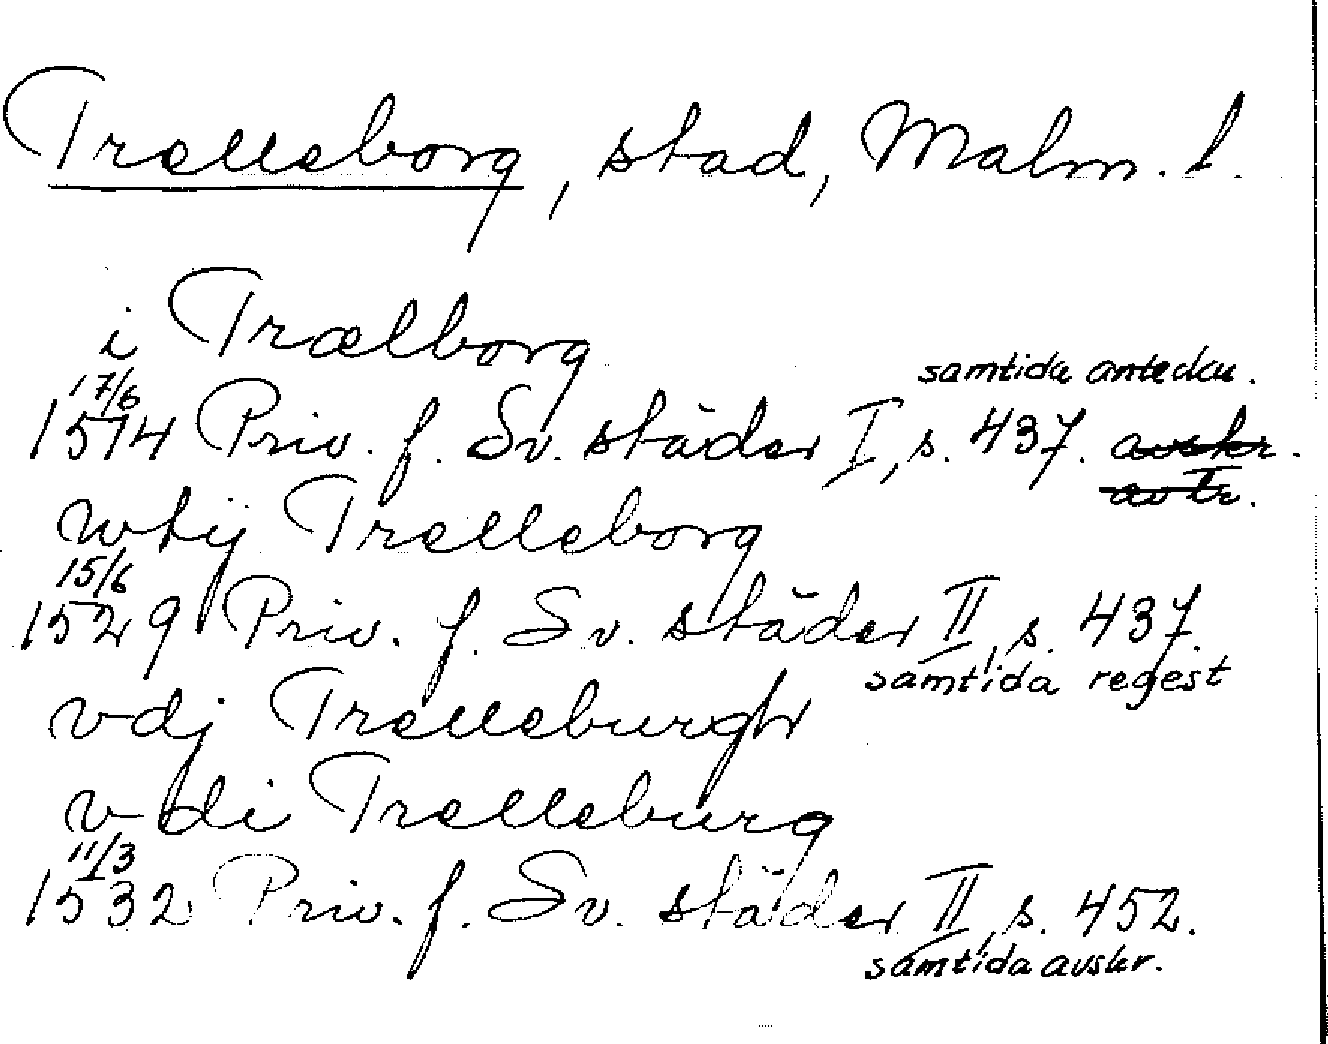 Trelleborg, stad, Malm. l.
i Trælborg
17/6 samtida anteckn.
1514 Priv. f. Sv. städer I, s. 437. avskr.
wtij Trelleborg
15/6
1529 Priv. f. Sv. städer II, s. 437.
samtida regest
vdj Trelleburgh
vdi Trelleburg
11/3
1532 Priv. f. Sv. städer II, s. 452.
samtida avskr.